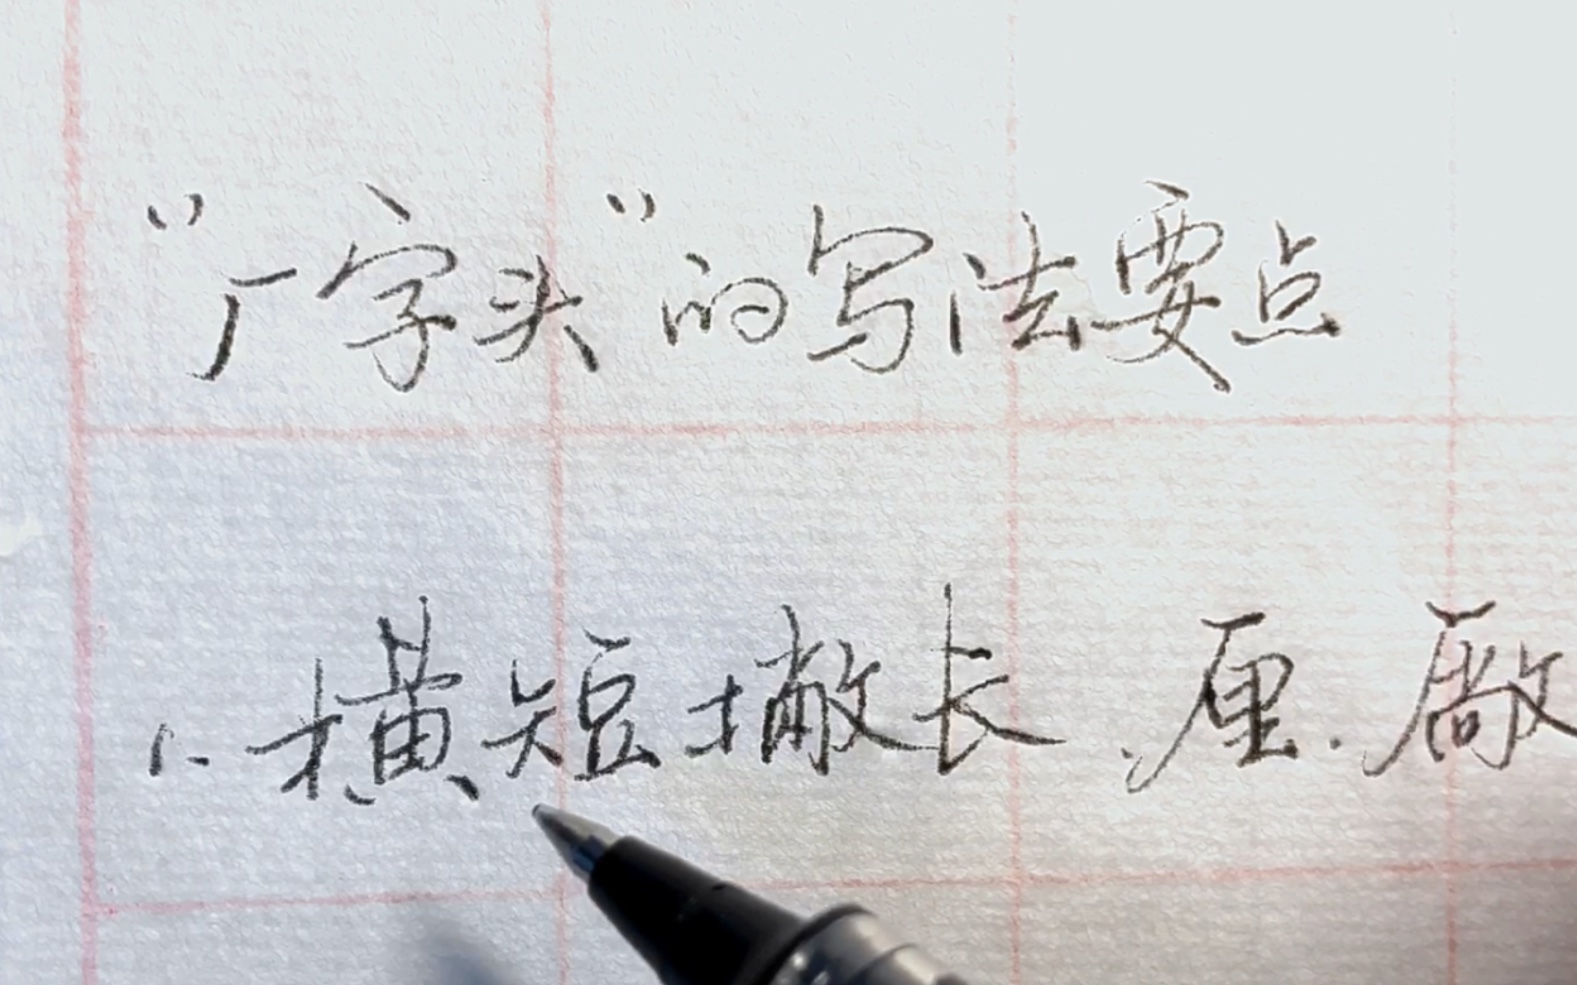 “厂字头”的写法要点
1、横短撇长、厘、厰